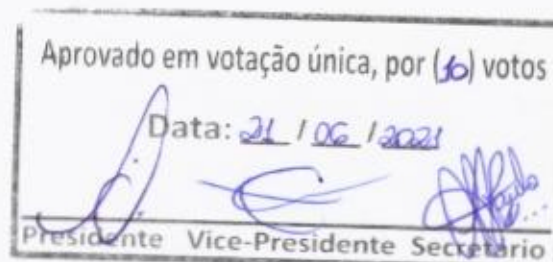 Aprovado em votação única, por (10) votos
Data: 21 / 06 / 2021
Presidente Vice-Presidente Secretário